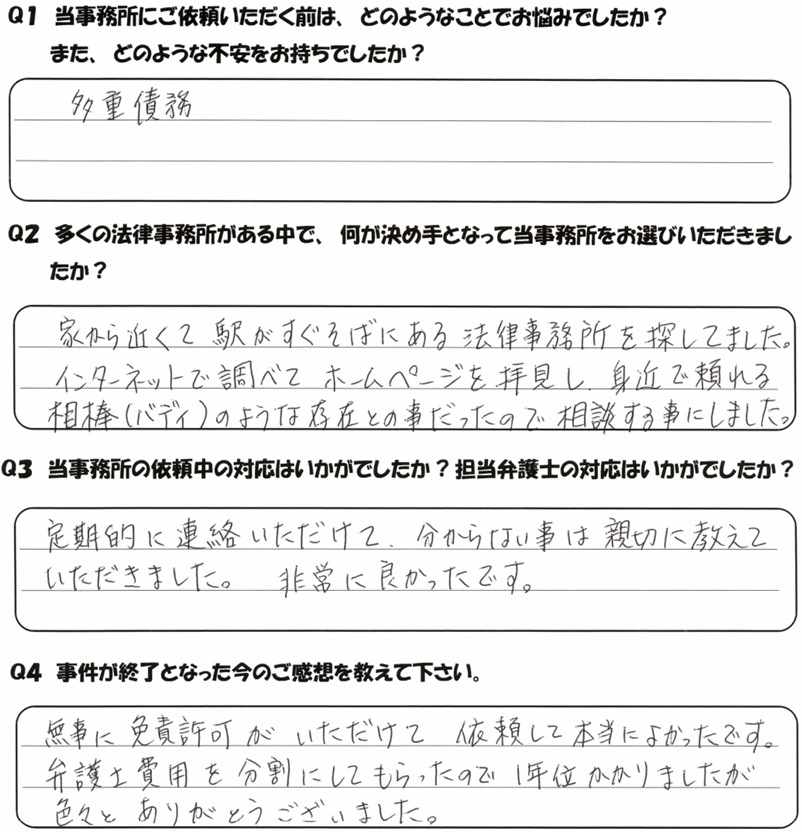 Q1 当事務所にご依頼いただく前は、どのようなことでお悩みでしたか？
また、どのような不安をお持ちでしたか？
多重債務
Q2 多くの法律事務所がある中で、何が決め手となって当事務所をお選びいただきまし
たか？
家から近くて 駅がすぐそばにある 法律事務所を探してました。
インターネットで調べて ホームページを拝見し、身近で頼れる
相棒(バディ)のような存在との事だったので 相談する事にしました。
Q3 当事務所の依頼中の対応はいかがでしたか？担当弁護士の対応はいかがでしたか？
定期的に連絡いただけて、分からない事は親切に教えて
いただきました。 非常に良かったです。
Q4 事件が終了となった今のご感想を教えて下さい。
無事に免責許可がいただけて 依頼して本当によかったです。
弁護士費用を分割にしてもらったので1年位かかりましたが
色々とありがとうございました。